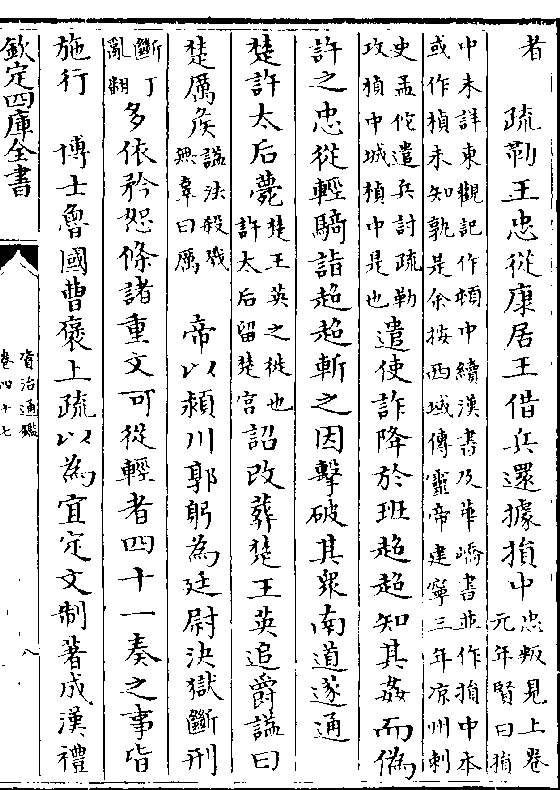 者　疏勒王忠從康居王借兵還據損中忠叛見上卷元年賢曰損
中未詳東觀記作頓中續漢書及華嶠書並作損中本或作楨未知孰是余按西域傳靈帝建寧三年涼州刺
史孟佗遣兵討疏勒攻楨中城楨中是也遣使詐降於班超超知其姦而偽
許之忠從輕騎詣超超斬之因擊破其衆南道遂通
楚許太后薨楚王英之徙也許太后留楚宮詔改葬楚王英追爵諡曰
楚厲侯諡法殺戮無辜曰厲　帝以潁川郭躬為廷尉決獄斷刑
斷丁亂翻多依矜恕條諸重文可從輕者四十一奏之事皆
施行　博士魯國曹褒上疏以為宜定文制著成漢禮
欽定四庫全書
資治通鑑
卷四十七
八